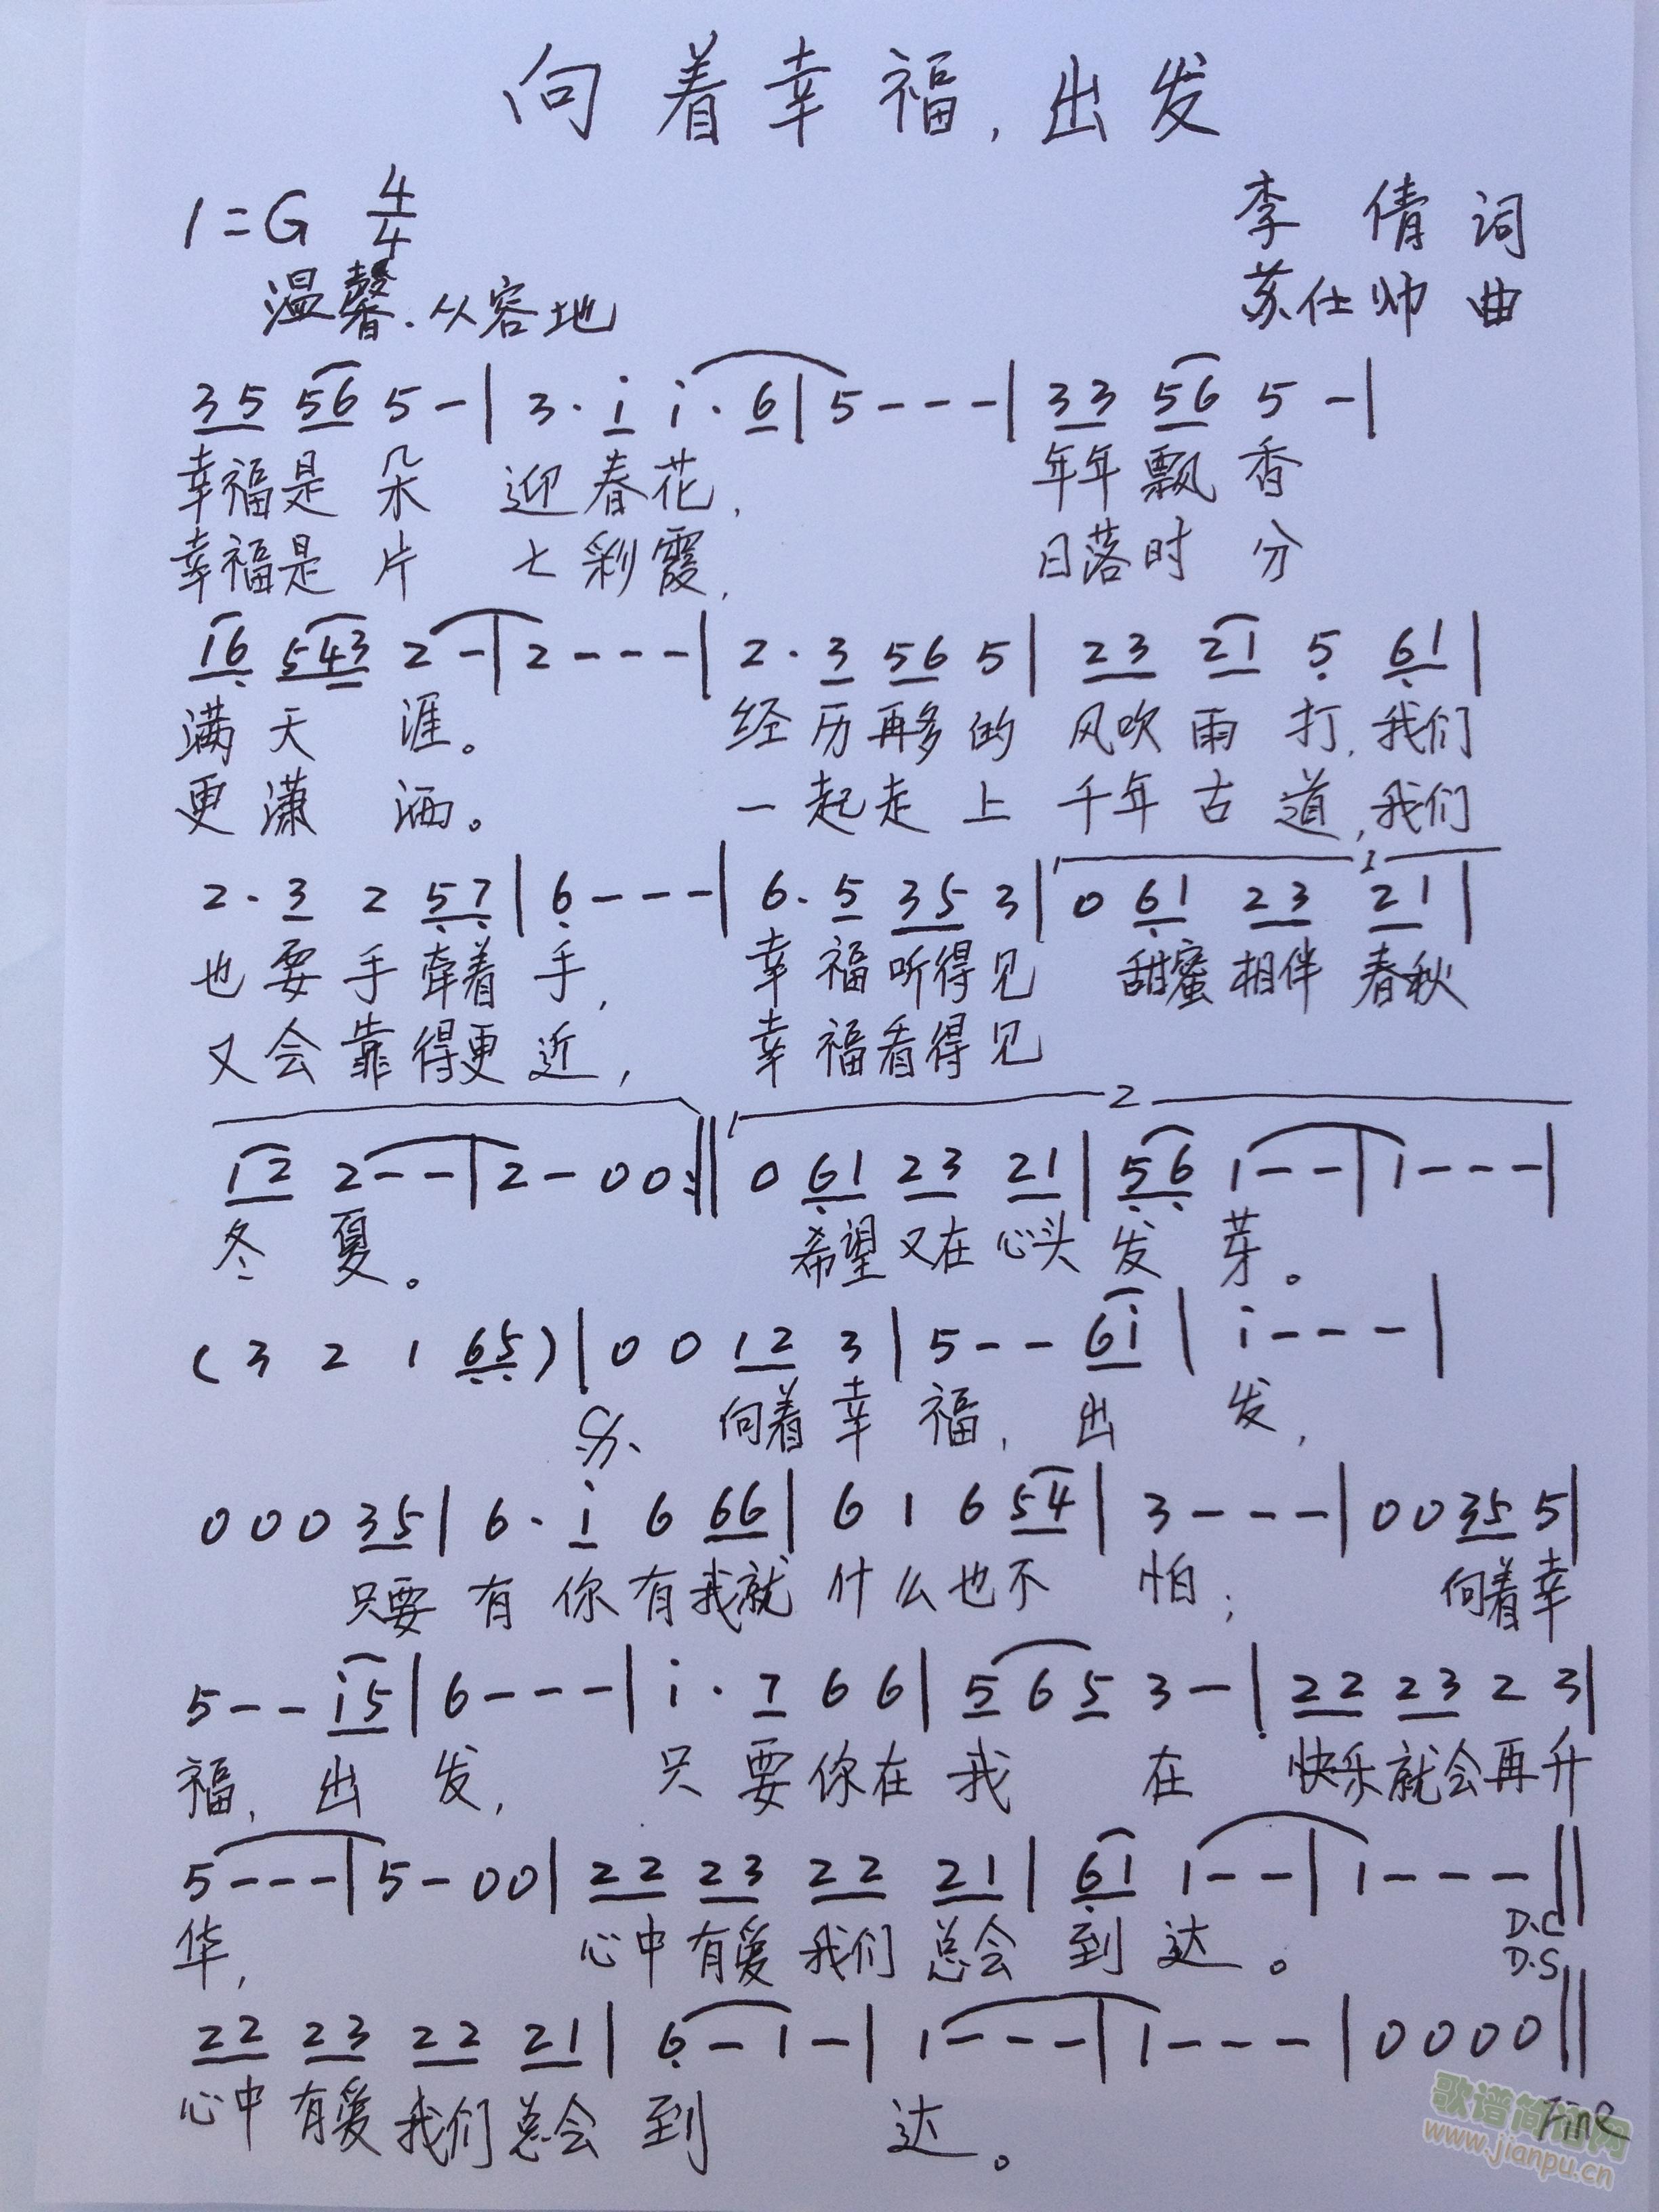 向着幸福,出发
1=G 4/4 李倩词
温馨.从容地 苏仕帅曲
35 56 5 - | 3· i i· 6 | 5 - - - | 33 56 5 - |
幸福是朵 迎春花, 年年飘香
幸福是片 七彩霞, 日落时分
16 543 2 - | 2 - - - | 2· 3 56 5 | 23 21 5 61 |
满天涯。 经历再多的 风吹雨打,我们
更潇洒。 一起走上 千年古道,我们
2· 3 2 57 | 6 - - - | 6· 5 35 3 | 0 61 23 21 |
1
也要手牵着手, 幸福听得见 甜蜜相伴春秋
又会靠得更近, 幸福看得见
2
12 2 - - | 2 - 0 0 :‖ 0 61 23 21 | 56 1 - - | 1 - - - |
冬夏。 希望又在心头发芽。
(3 2 1 65) | 0 0 12 3 | 5 - - 6i | i - - - |
向着幸福,出发,
0 0 0 35 | 6· i 6 66 | 6 1 6 54 | 3 - - - | 0 0 35 5 |
只要有你有我就什么也不怕; 向着幸
5 - - i5 | 6 - - - | i· 7 6 6 | 5 6 5 3 - | 22 23 2 3 |
福,出发, 只要你在我在 快乐就会再升
5 - - - | 5 - 0 0 | 22 23 22 21 | 61 1 - - | 1 - - - ‖
华, 心中有爱我们总会到达。 D.C
D.S
22 23 22 21 | 6 - 1 - | 1 - - - | 1 - - - | 0 0 0 0 ‖
心中有爱我们总会到达。 Fine
歌谱简谱网
www.jianpu.cn